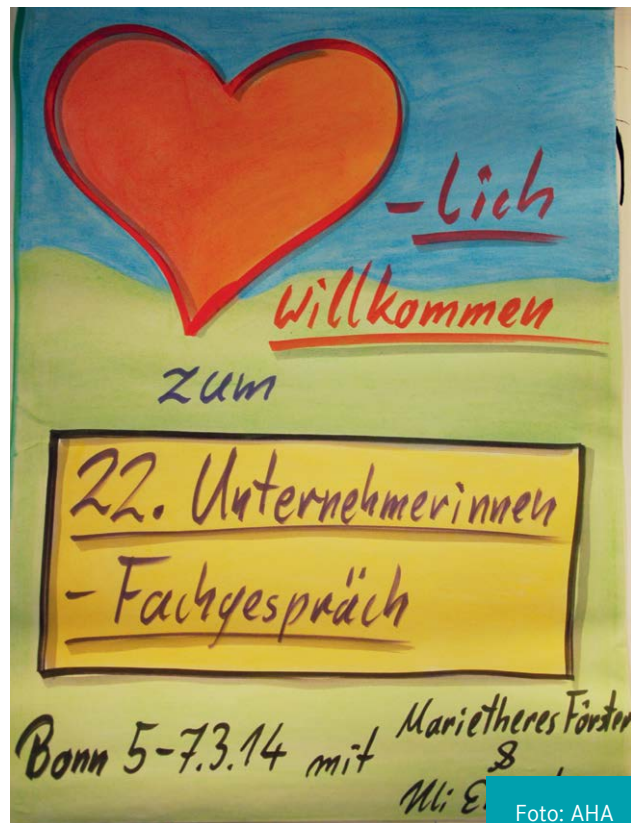 -lich
willkommen
zum
22. Unternehmerinnen
- Fachgespräch
Bonn 5-7.3.14 mit
Marietheres Förster
&
Uli
Foto: AHA